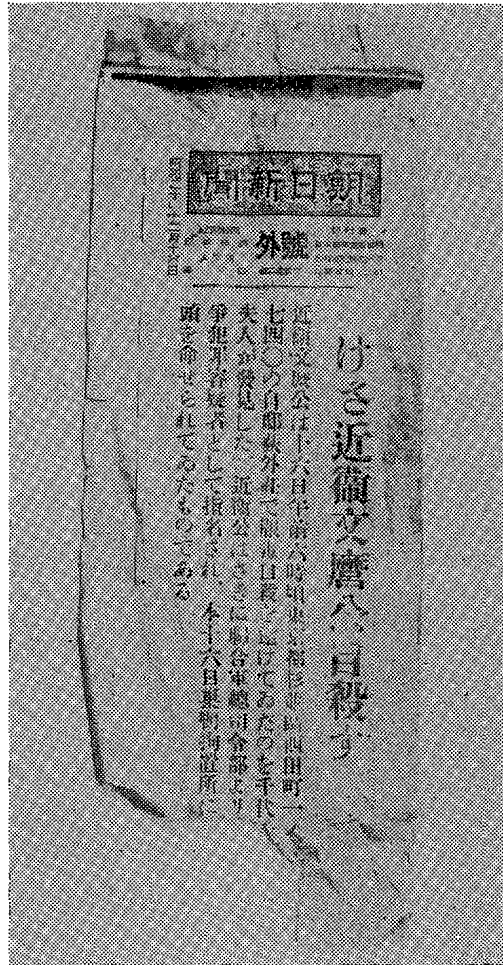 朝日新聞
號外
けさ近衞文麿公自殺す
近衞文麿公は十六日午前六時頃東京都杉並區西田町一
七四〇の自邸荻外莊で服毒自殺を遂げてゐたのを千代
夫人が發見した、近衞公はさきに聯合軍總司令部より
爭犯罪容疑者として指名され、本十六日巣鴨拘置所に
頭を命ぜられてゐたものである